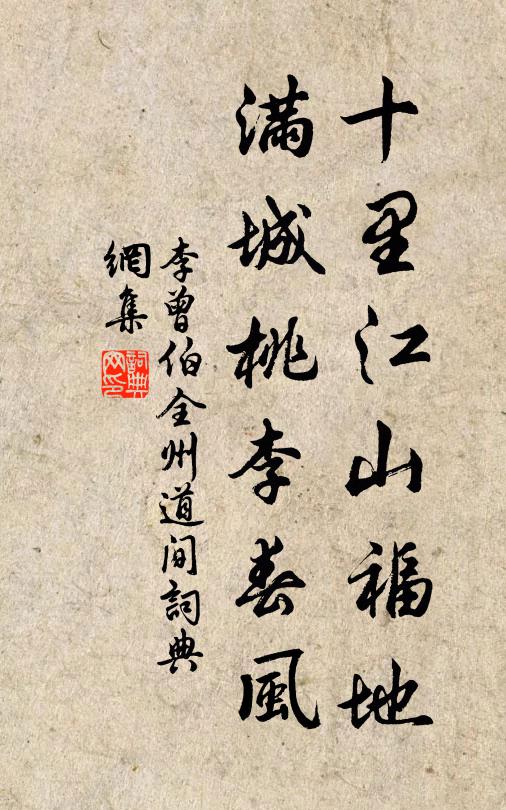 十里江山福地
滿城桃李春風
李曾伯全州道間詞典
網集
詞典網印